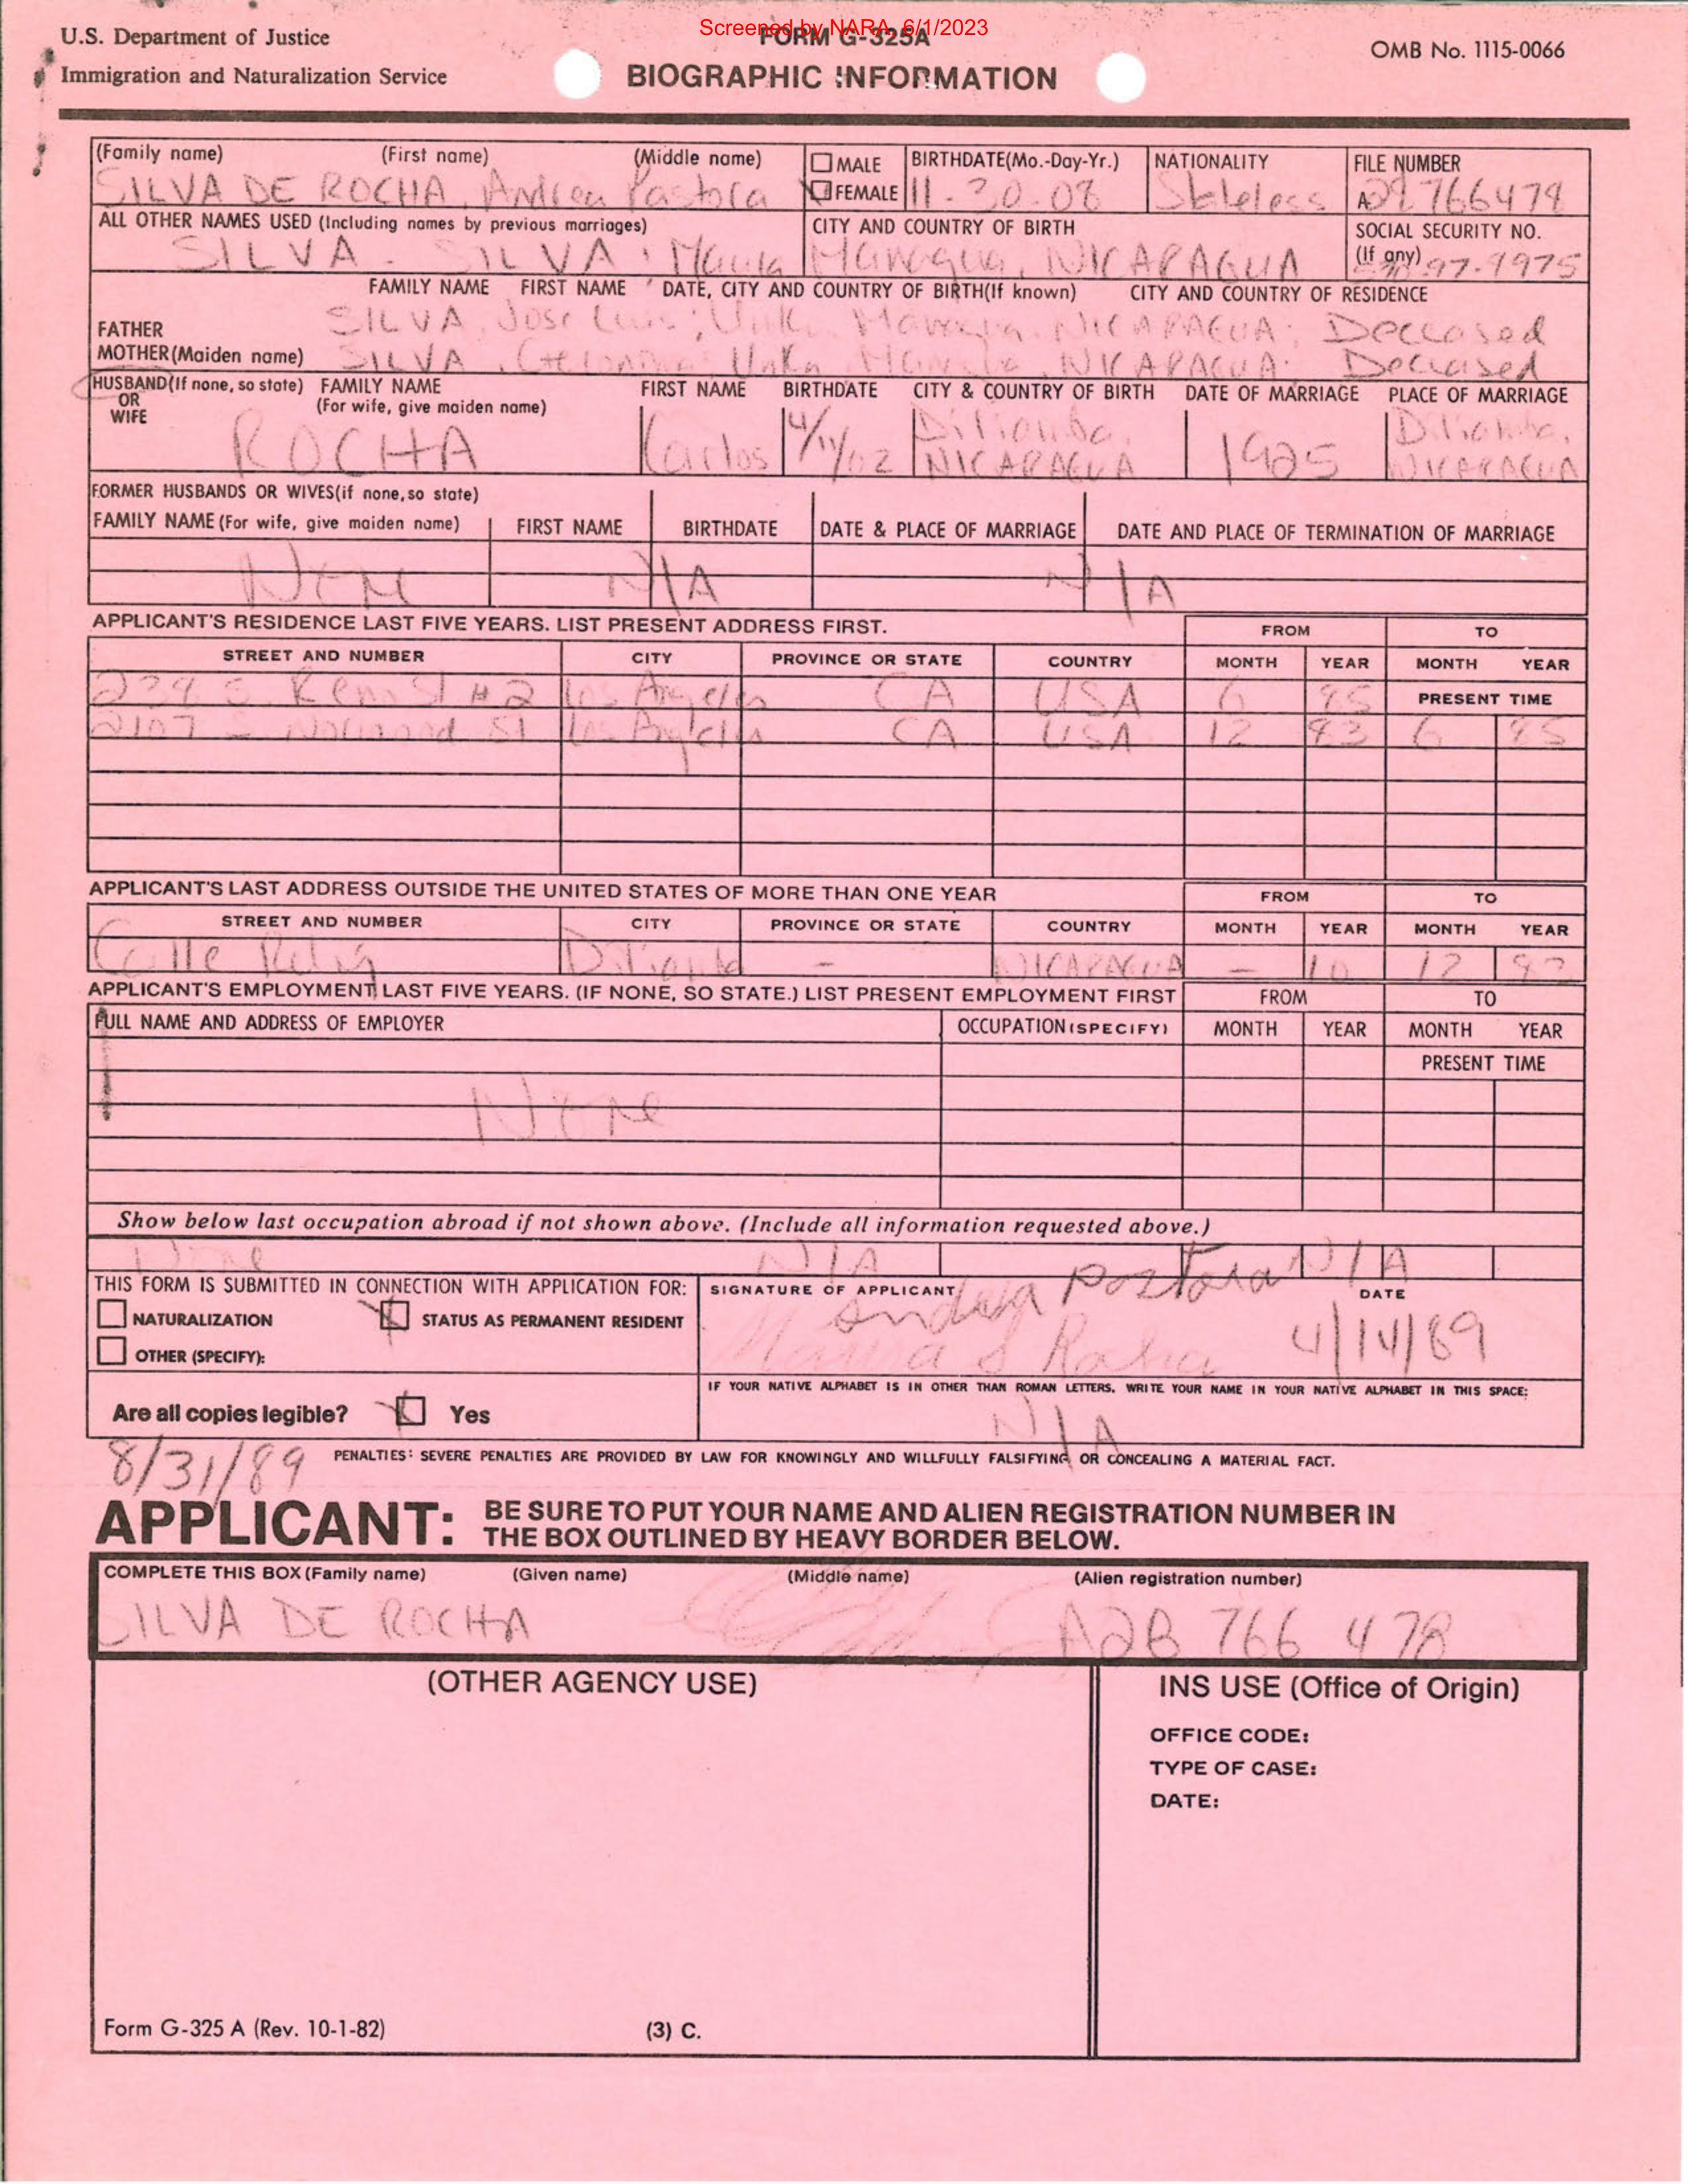 Screened by NARA, 6/1/2023
U.S. Department of Justice
Immigration and Naturalization Service
FORM G-325A
BIOGRAPHIC INFORMATION
OMB No. 1115-0066
(Family name) (First name) (Middle name) MALE BIRTHDATE(Mo.-Day-Yr.) NATIONALITY FILE NUMBER
SILVA DE ROCHA, Andrea Pastora FEMALE 11-30-08 Stateless
ALL OTHER NAMES USED (Including names by previous marriages) CITY AND COUNTRY OF BIRTH SOCIAL SECURITY NO.
(If any)
SILVA - SILVA, Maria Managua, NICARAGUA
FAMILY NAME FIRST NAME DATE, CITY AND COUNTRY OF BIRTH(If known) CITY AND COUNTRY OF RESIDENCE
FATHER SILVA, Jose Luis; Unk. Managua, NICARAGUA; Deceased
MOTHER(Maiden name) SILVA, Unkn Managua, NICARAGUA: Deceased
HUSBAND(If none, so state) FAMILY NAME FIRST NAME BIRTHDATE CITY & COUNTRY OF BIRTH DATE OF MARRIAGE PLACE OF MARRIAGE
OR (For wife, give maiden name)
WIFE
ROCHA Carlos 4/11/02 Diriamba, NICARAGUA 1925 Diriamba, NICARAGUA
FORMER HUSBANDS OR WIVES(if none,so state)
FAMILY NAME (For wife, give maiden name) FIRST NAME BIRTHDATE DATE & PLACE OF MARRIAGE DATE AND PLACE OF TERMINATION OF MARRIAGE
None N/A N/A
APPLICANT'S RESIDENCE LAST FIVE YEARS. LIST PRESENT ADDRESS FIRST. FROM TO
STREET AND NUMBER CITY PROVINCE OR STATE COUNTRY MONTH YEAR MONTH YEAR
St #2 Los Angeles CA USA 6 85 PRESENT TIME
2107 S Normand St Los Angeles CA USA 12 83 6 85
APPLICANT'S LAST ADDRESS OUTSIDE THE UNITED STATES OF MORE THAN ONE YEAR FROM TO
STREET AND NUMBER CITY PROVINCE OR STATE COUNTRY MONTH YEAR MONTH YEAR
Calle Diriamba - NICARAGUA - 10 12
APPLICANT'S EMPLOYMENT LAST FIVE YEARS. (IF NONE, SO STATE.) LIST PRESENT EMPLOYMENT FIRST FROM TO
FULL NAME AND ADDRESS OF EMPLOYER OCCUPATION (SPECIFY) MONTH YEAR MONTH YEAR
PRESENT TIME
None
Show below last occupation abroad if not shown above. (Include all information requested above.)
None N/A N/A
THIS FORM IS SUBMITTED IN CONNECTION WITH APPLICATION FOR: SIGNATURE OF APPLICANT DATE
NATURALIZATION STATUS AS PERMANENT RESIDENT
andrea pastora
Marina S Rocha 4/14/89
OTHER (SPECIFY):
IF YOUR NATIVE ALPHABET IS IN OTHER THAN ROMAN LETTERS, WRITE YOUR NAME IN YOUR NATIVE ALPHABET IN THIS SPACE:
Are all copies legible? Yes
N/A
8/31/89
PENALTIES: SEVERE PENALTIES ARE PROVIDED BY LAW FOR KNOWINGLY AND WILLFULLY FALSIFYING OR CONCEALING A MATERIAL FACT.
APPLICANT: BE SURE TO PUT YOUR NAME AND ALIEN REGISTRATION NUMBER IN
THE BOX OUTLINED BY HEAVY BORDER BELOW.
COMPLETE THIS BOX (Family name) (Given name) (Middle name) (Alien registration number)
SILVA DE ROCHA A28 766 478
(OTHER AGENCY USE)
INS USE (Office of Origin)
OFFICE CODE:
TYPE OF CASE:
DATE:
Form G-325 A (Rev. 10-1-82) (3) C.